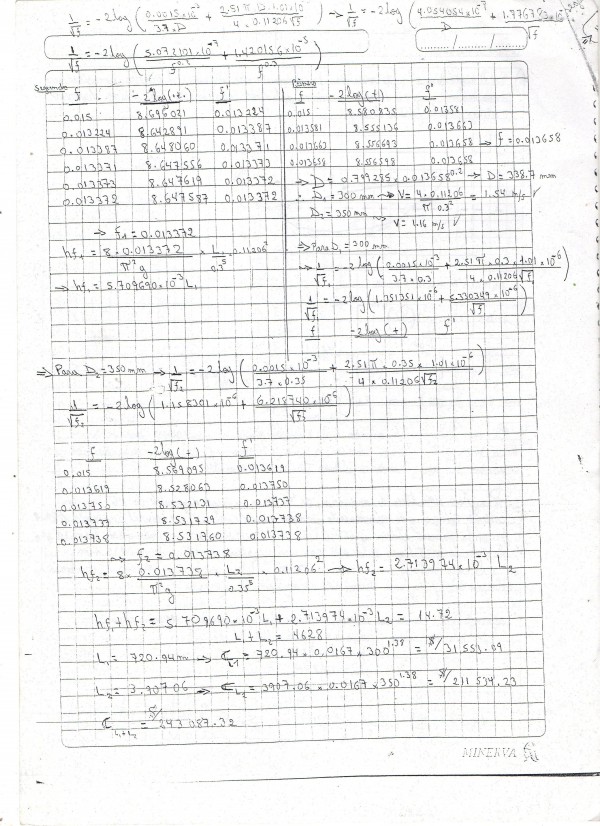 1/√f = -2log( 0.0015x10⁻³ / 3.7.D + 2.51 π D.1.01x10 / 4.0.11206√f ) → 1/√f = -2log( 4.054054x10⁻⁷ / D + 1.776783x10
1/√f = -2log( 5.072101x10⁻⁷ / f^0.2 + 1.420156x10⁻⁵ / f^0.3 )
Segundo
f -2log(+) f'
0.015 8.696021 0.013224
0.013224 8.642891 0.013387
0.013387 8.648060 0.013371
0.013371 8.647556 0.013373
0.013373 8.647619 0.013372
0.013372 8.647587 0.013372
→ f₁ = 0.013372
hf₁ = 8.0.013372 / π²g x L₁ / 0.3⁵ 0.11206²
→ hf₁ = 5.709690x10⁻³ L₁
Primero
f -2log(+) f'
0.015 8.580835 0.013581
0.013581 8.555136 0.013663
0.013663 8.556693 0.013658 → f = 0.013658
0.013658 8.556598 0.013658
→ D = 0.799285 x 0.013658^0.2 → D = 338.7 mm
∴ D₁ = 300 mm → V = 4.0.11206 / π 0.3² = 1.54 m/s ✓
D₂ = 350 mm → V = 1.16 m/s ✓
⇒ Para D₁ = 300 mm
→ 1/√f₁ = -2log( 0.0015x10⁻³ / 3.7.0.3 + 2.51 π x 0.3 x 1.01x10⁻⁶ / 4x0.11206√f₁ )
1/√f₁ = -2log( 1.351351x10⁻⁶ + 5.330349x10⁻⁶ / √f₁ )
f -2log(+) f'
⇒ Para D₂ = 350 mm → 1/√f₂ = -2log( 0.0015x10⁻³ / 3.7x0.35 + 2.51 π x 0.35 x 1.01x10⁻⁶ / 4x0.11206√f₂ )
1/√f₂ = -2log( 1.158301x10⁻⁶ + 6.218740x10⁻⁶ / √f₂ )
f -2log(+) f'
0.015 8.569095 0.013619
0.013619 8.528063 0.013750
0.013750 8.532131 0.013737
0.013737 8.531729 0.013738
0.013738 8.531760 0.013738
→ f₂ = 0.013738
hf₂ = 8x 0.013738 / π²g x L₂ / 0.35⁵ x 0.11206² → hf₂ = 2.713974x10⁻³ L₂
hf₁ + hf₂ = 5.709690x10⁻³ L₁ + 2.713974x10⁻³ L₂ = 14.72
L₁ + L₂ = 4628
L₁ = 720.94m → C_L1 = 720.94 x 0.0167 x 300^1.38 = $/31 553.09
L₂ = 3.907.06 → C_L2 = 3907.06 x 0.0167 x 350^1.38 = $/211 534.23
C_L1+L2 = $/243 087.32
MINERVA